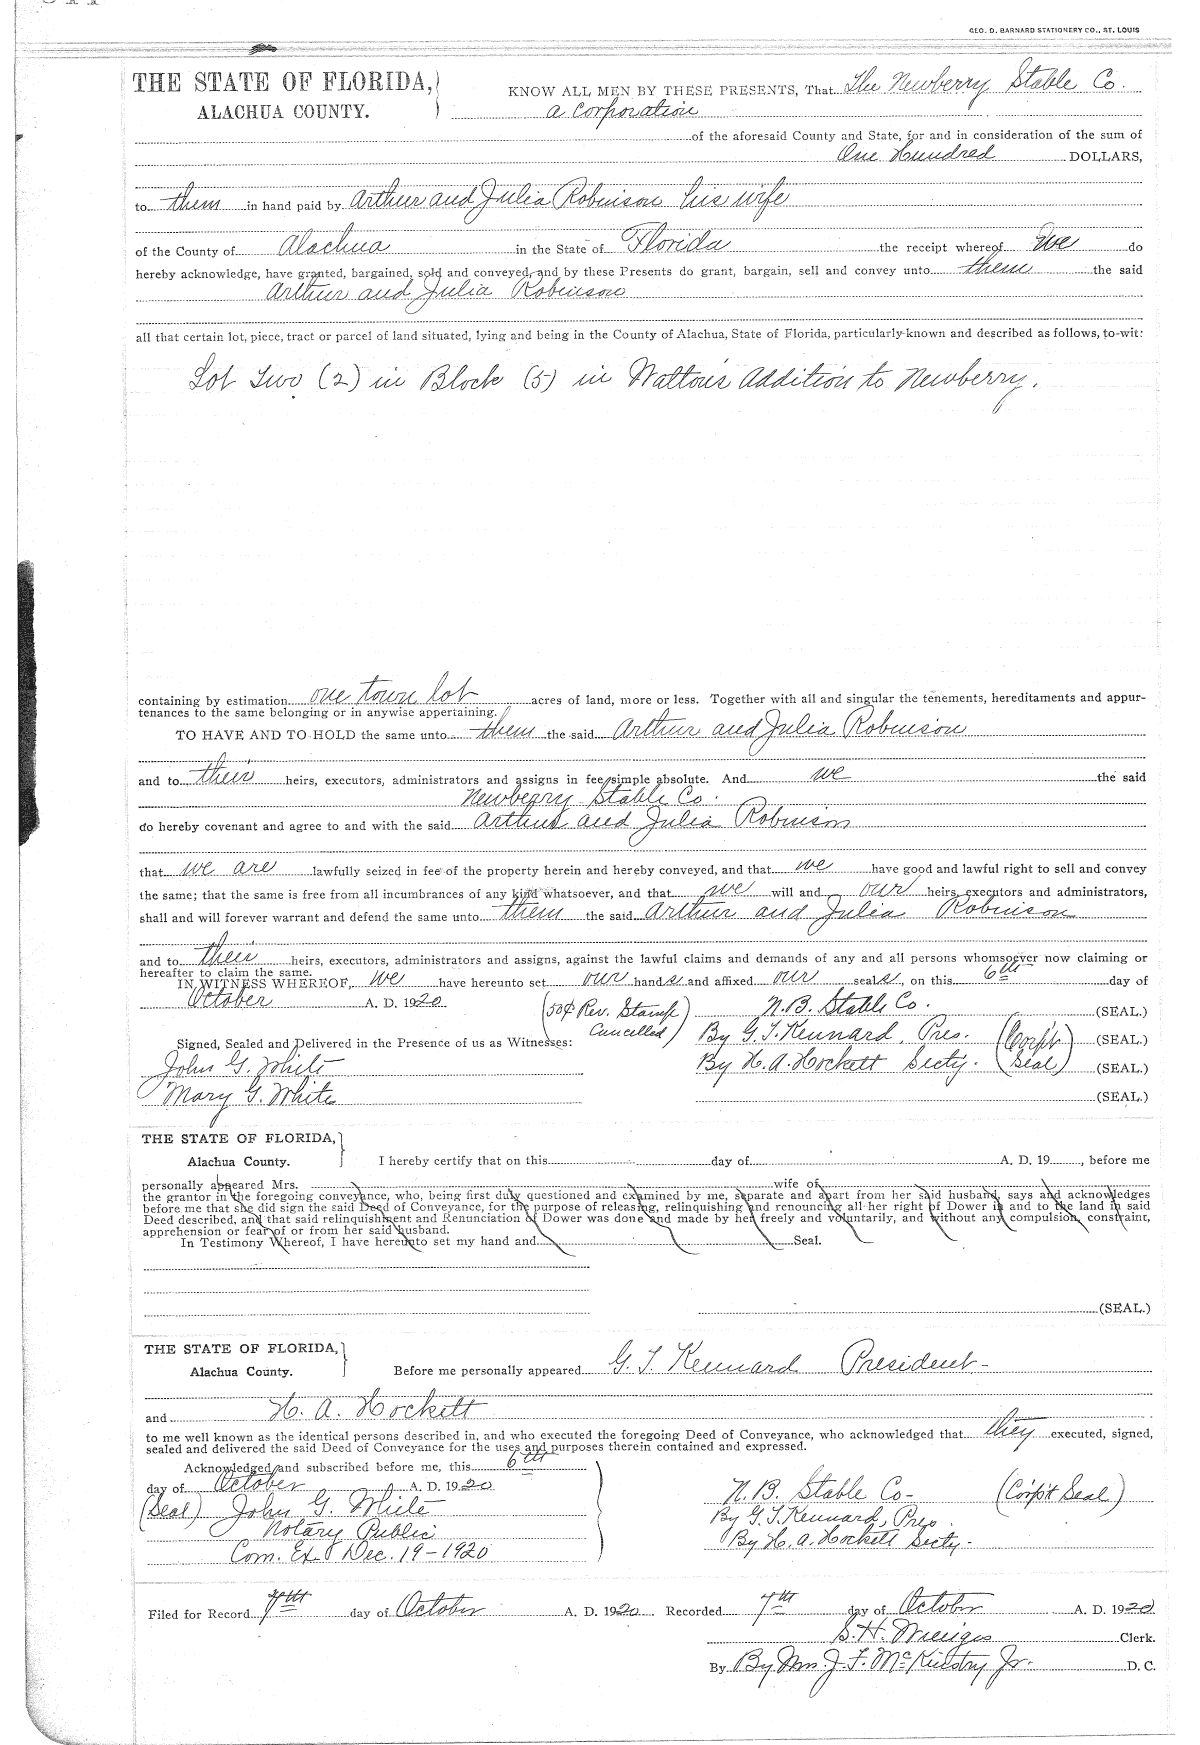 GEO. D. BARNARD STATIONERY CO., ST. LOUIS
THE STATE OF FLORIDA,
ALACHUA COUNTY.
KNOW ALL MEN BY THESE PRESENTS, That The Newberry Stable Co.
a corporation
of the aforesaid County and State, for and in consideration of the sum of
One Hundred DOLLARS,
to them in hand paid by Arthur and Julia Robinson his wife
of the County of Alachua in the State of Florida the receipt whereof we do
hereby acknowledge, have granted, bargained, sold and conveyed, and by these Presents do grant, bargain, sell and convey unto them the said
Arthur and Julia Robinson
all that certain lot, piece, tract or parcel of land situated, lying and being in the County of Alachua, State of Florida, particularly known and described as follows, to-wit:
Lot Two (2) in Block (5) in Walton's Addition to Newberry.
containing by estimation one town lot acres of land, more or less. Together with all and singular the tenements, hereditaments and appur-
tenances to the same belonging or in anywise appertaining.
TO HAVE AND TO HOLD the same unto them the said Arthur and Julia Robinson
and to their heirs, executors, administrators and assigns in fee simple absolute. And we the said
Newberry Stable Co.
do hereby covenant and agree to and with the said Arthur and Julia Robinson
that we are lawfully seized in fee of the property herein and hereby conveyed, and that we have good and lawful right to sell and convey
the same; that the same is free from all incumbrances of any kind whatsoever, and that we will and our heirs, executors and administrators,
shall and will forever warrant and defend the same unto them the said Arthur and Julia Robinson
and to their heirs, executors, administrators and assigns, against the lawful claims and demands of any and all persons whomsoever now claiming or
hereafter to claim the same.
IN WITNESS WHEREOF, we have hereunto set our hands and affixed our seals, on this 6th day of
October A. D. 1920
(50¢ Rev. Stamp Cancelled)
N. B. Stable Co. (SEAL.)
By G. T. Kennard, Pres. (Corp't Seal) (SEAL.)
Signed, Sealed and Delivered in the Presence of us as Witnesses:
John G. White
By H. A. Hockett Secty. (SEAL.)
Mary G. White
(SEAL.)
THE STATE OF FLORIDA,
Alachua County.
I hereby certify that on this day of A. D. 19 , before me
personally appeared Mrs. wife of
the grantor in the foregoing conveyance, who, being first duly questioned and examined by me, separate and apart from her said husband, says and acknowledges
before me that she did sign the said Deed of Conveyance, for the purpose of releasing, relinquishing and renouncing all her right of Dower in and to the land in said
Deed described, and that said relinquishment and Renunciation of Dower was done and made by her freely and voluntarily, and without any compulsion, constraint,
apprehension or fear of or from her said husband.
In Testimony Whereof, I have hereunto set my hand and Seal.
(SEAL.)
THE STATE OF FLORIDA,
Alachua County.
Before me personally appeared G. T. Kennard President-
and H. A. Hockett
to me well known as the identical persons described in, and who executed the foregoing Deed of Conveyance, who acknowledged that they executed, signed,
sealed and delivered the said Deed of Conveyance for the uses and purposes therein contained and expressed.
Acknowledged and subscribed before me, this 6th
day of October A. D. 1920
(Seal) John G. White
Notary Public
Com. Ex. Dec. 19-1920
N. B. Stable Co- (Corp't Seal)
By G. T. Kennard, Pres.
By H. A. Hockett Secty.
Filed for Record 7th day of October A. D. 1920 Recorded 7th day of October A. D. 1920
S. H. Wienges Clerk.
By By Mrs. J. F. McKinstry Jr. D. C.